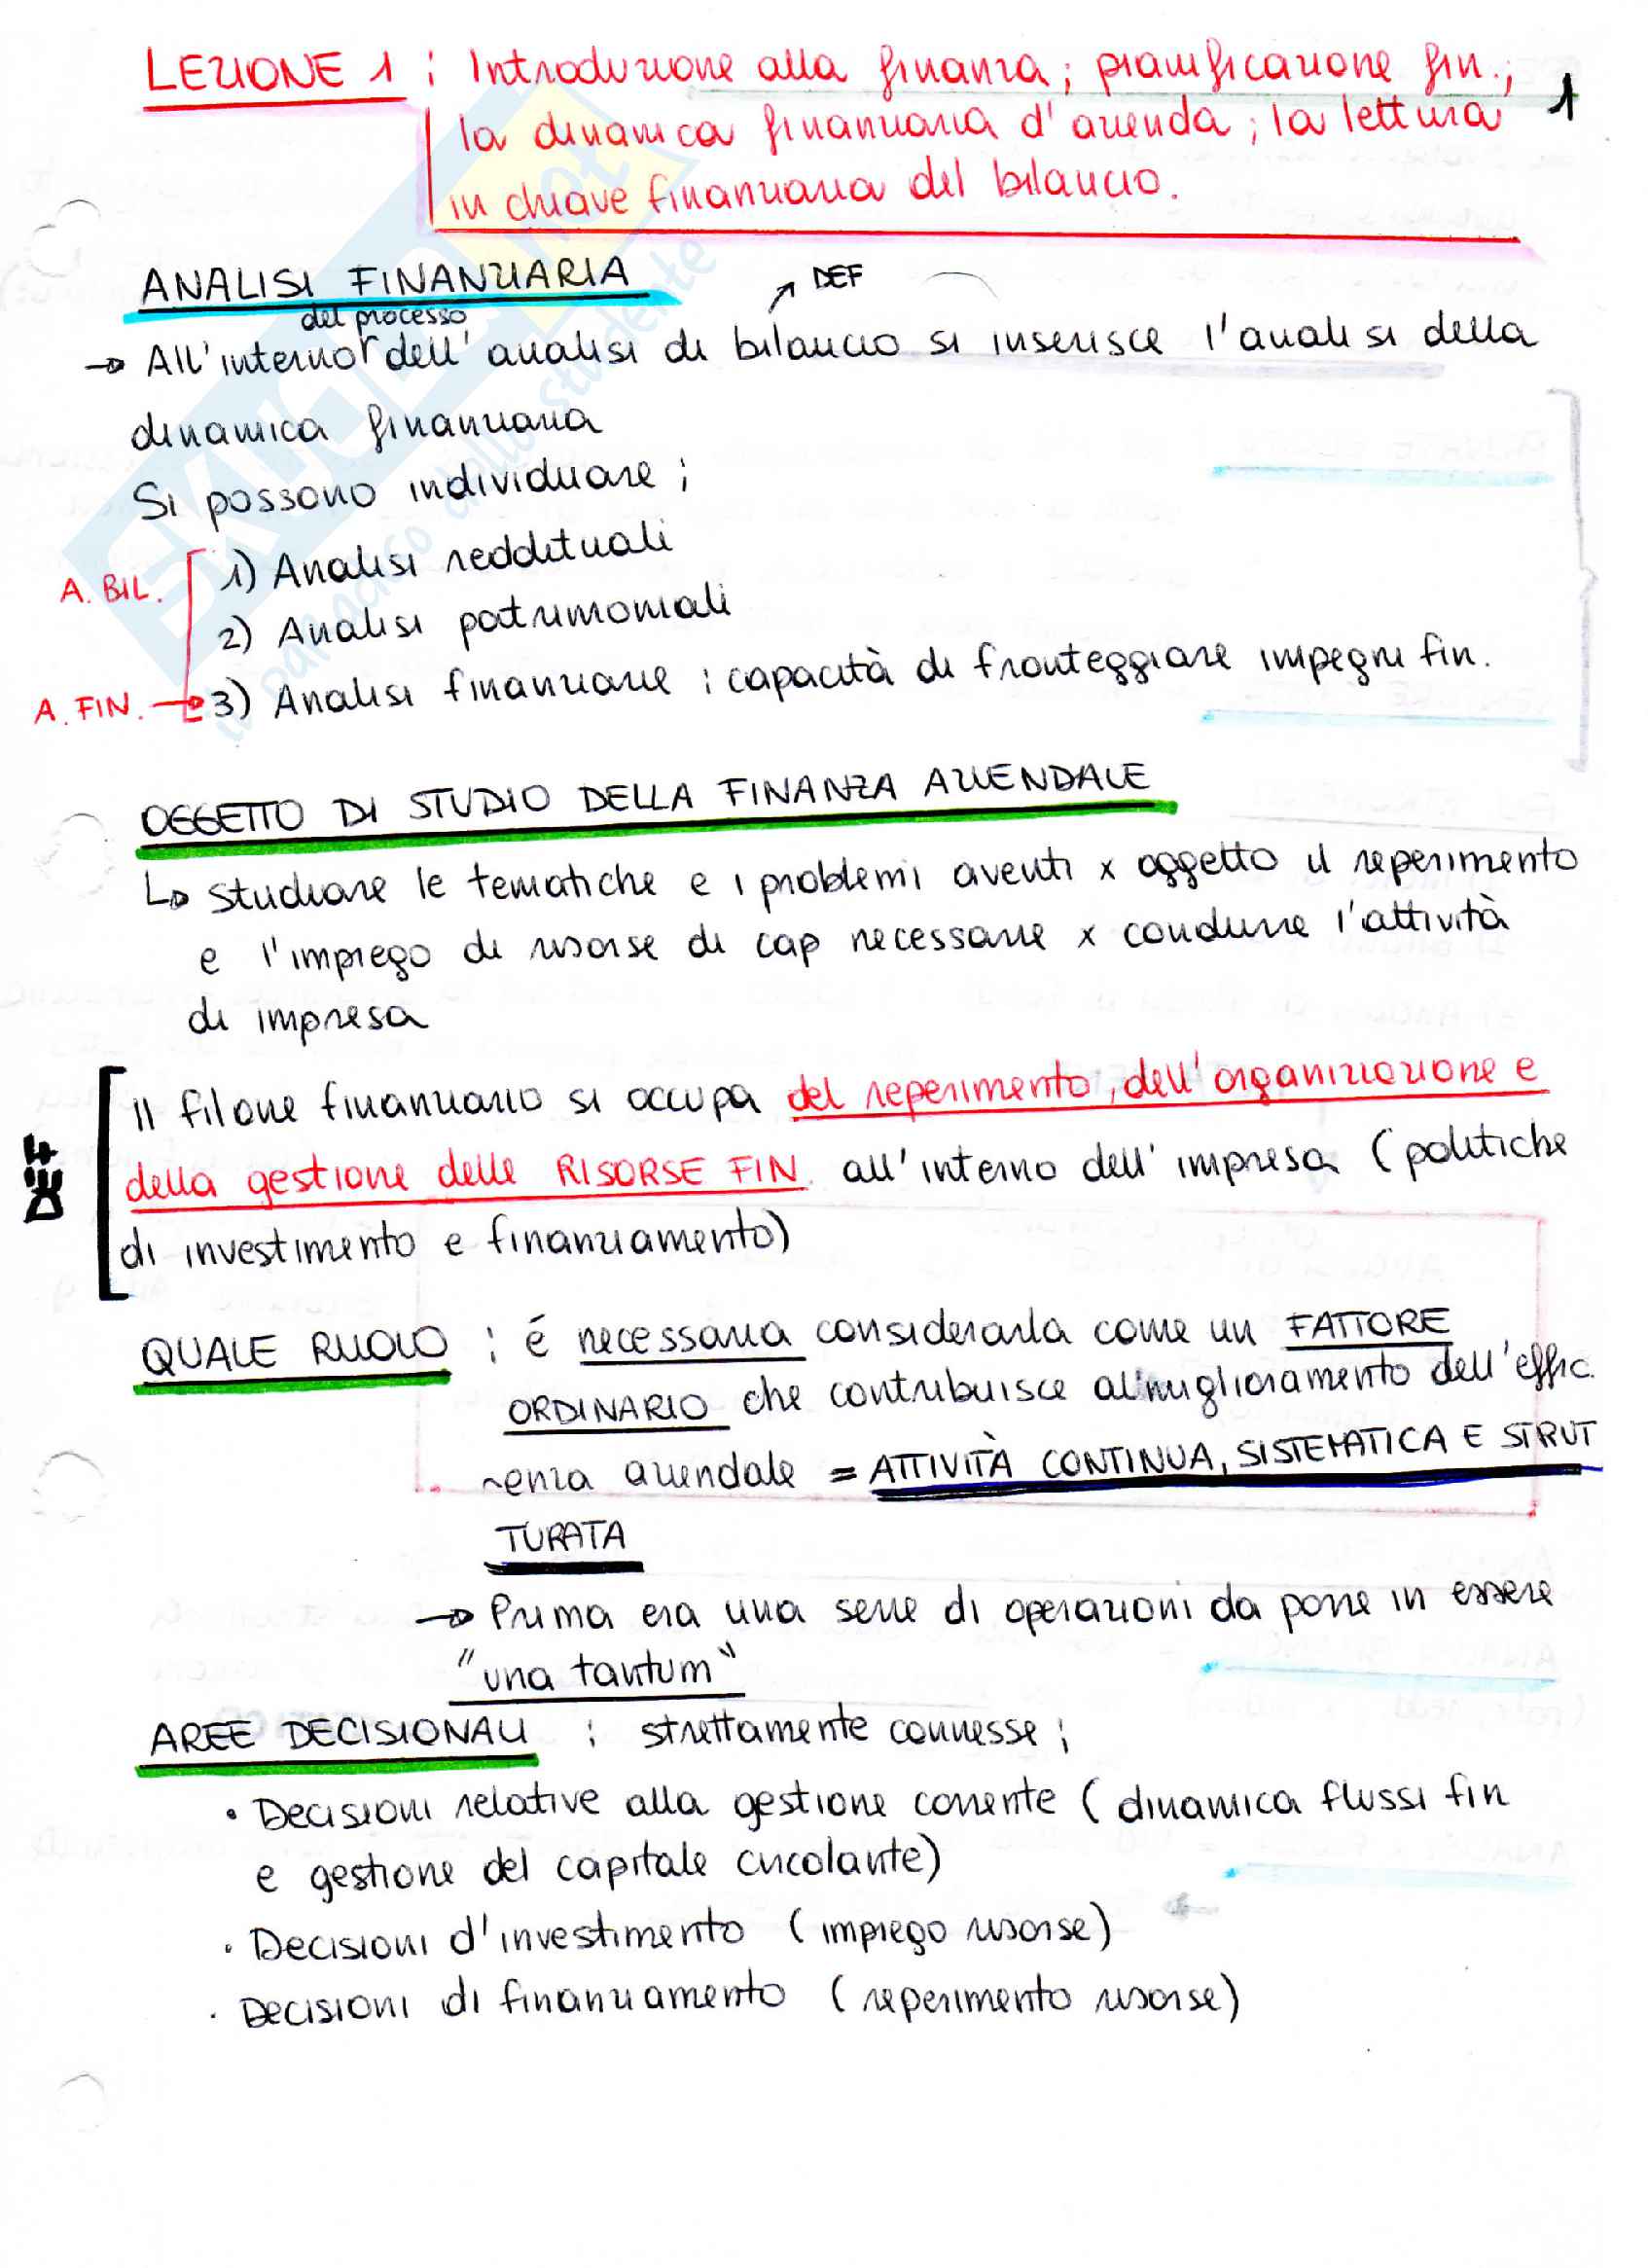 LEZIONE 1 : Introduzione alla finanza; pianificazione fin.;
1
la dinamica finanziaria d'azienda; la lettura
in chiave finanziaria del bilancio.
ANALISI FINANZIARIA
DEF
del processo
→ All'interno dell'analisi di bilancio si inserisce l'analisi della
dinamica finanziaria
Si possono individuare :
A. BIL.
1) Analisi reddituali
2) Analisi patrimoniali
A. FIN. → 3) Analisi finanziarie : capacità di fronteggiare impegni fin.
OGGETTO DI STUDIO DELLA FINANZA AZIENDALE
↳ studiare le tematiche e i problemi aventi x oggetto il reperimento
e l'impiego di risorse di cap necessarie x condurre l'attività
di impresa
Il filone finanziario si occupa del reperimento, dell'organizzazione e
della gestione delle RISORSE FIN. all'interno dell'impresa (politiche
di investimento e finanziamento)
QUALE RUOLO : é necessaria considerarla come un FATTORE
ORDINARIO che contribuisce al miglioramento dell'effic.
~enza aziendale = ATTIVITÀ CONTINUA, SISTEMATICA E STRUT
TURATA
→ Prima era una serie di operazioni da porre in essere
"una tantum"
AREE DECISIONALI : strettamente connesse :
• Decisioni relative alla gestione corrente (dinamica flussi fin
e gestione del capitale circolante)
• Decisioni d'investimento (impiego risorse)
• Decisioni di finanziamento (reperimento risorse)
SKUOLA.net
il paradiso dello studente